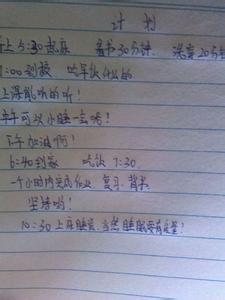 计 划
上5:30起床 看书30分钟. 洗漱20分钟
7:00到校 吃早饭什么的
上课能听的听!
中午可以小睡一会嘛!
下午加油啊!
6:40到家 吃饭 7:30
一个小时内完成作业、复习、背书
坚持哟!
10:30上床睡觉.当然睡眠要有质量!